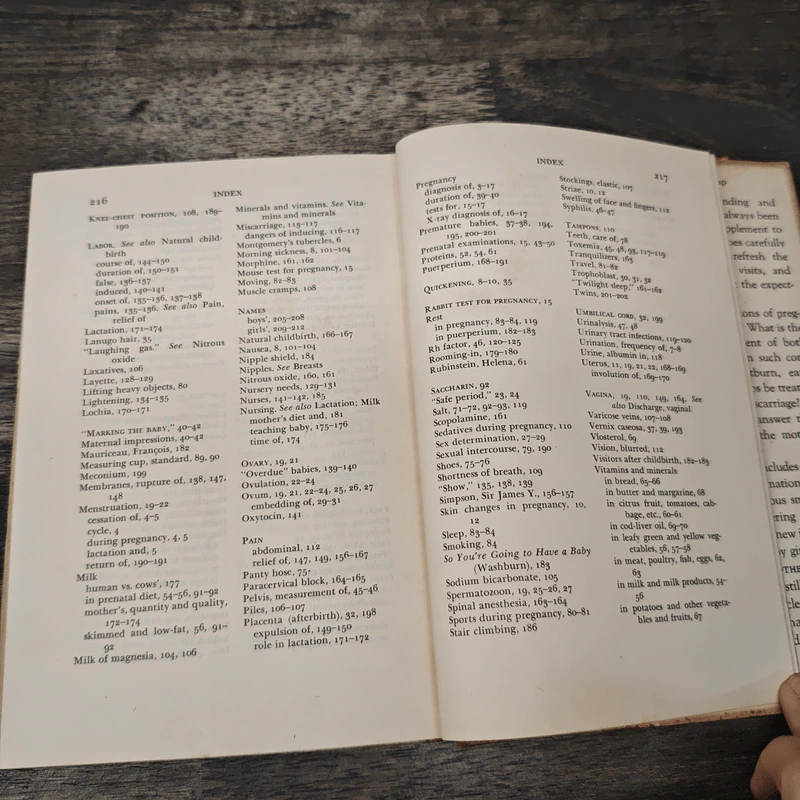 216
INDEX
KNEE-CHEST POSITION, 108, 189-
190
LABOR. See also Natural child-
birth
course of, 144-150
duration of, 150-151
false, 136-137
induced, 140-141
onset of, 135-136, 137-138
pains, 135-136. See also Pain,
relief of
Lactation, 171-174
Lanugo hair, 35
"Laughing gas." See Nitrous
oxide
Laxatives, 106
Layette, 128-129
Lifting heavy objects, 80
Lightening, 134-135
Lochia, 170-171
"MARKING THE BABY," 40-42
Maternal impressions, 40-42
Mauriceau, François, 182
Measuring cup, standard, 89, 90
Meconium, 199
Membranes, rupture of, 138, 147,
148
Menstruation, 19-22
cessation of, 4-5
cycle, 4
during pregnancy, 4, 5
lactation and, 5
return of, 190-191
Milk
human vs. cows', 177
in prenatal diet, 54-56, 91-92
mother's, quantity and quality,
172-174
skimmed and low-fat, 56, 91-
92
Milk of magnesia, 104, 106
Minerals and vitamins. See Vita-
mins and minerals
Miscarriage, 113-117
dangers of inducing, 116-117
Montgomery's tubercles, 6
Morning sickness, 8, 101-104
Morphine, 161, 162
Mouse test for pregnancy, 15
Moving, 82-83
Muscle cramps, 108
NAMES
boys', 205-208
girls', 209-212
Natural childbirth, 166-167
Nausea, 8, 101-104
Nipple shield, 184
Nipples. See Breasts
Nitrous oxide, 160, 161
Nursery needs, 129-131
Nurses, 141-142, 185
Nursing. See also Lactation; Milk
mother's diet and, 181
teaching baby, 175-176
time of, 174
OVARY, 19, 21
"Overdue" babies, 139-140
Ovulation, 22-24
Ovum, 19, 21, 22-24, 25, 26, 27
embedding of, 29-31
Oxytocin, 141
PAIN
abdominal, 112
relief of, 147, 149, 156-167
Panty hose, 75
Paracervical block, 164-165
Pelvis, measurement of, 45-46
Piles, 106-107
Placenta (afterbirth), 32, 198
expulsion of, 149-150
role in lactation, 171-172
INDEX
217
Pregnancy
diagnosis of, 3-17
duration of, 39-40
tests for, 15-17
X-ray diagnosis of, 16-17
Premature babies, 37-38, 194,
195, 200-201
Prenatal examinations, 15, 43-50
Proteins, 52, 54, 61
Puerperium, 168-191
QUICKENING, 8-10, 35
RABBIT TEST FOR PREGNANCY, 15
Rest
in pregnancy, 83-84, 119
in puerperium, 182-183
Rh factor, 46, 120-125
Rooming-in, 179-180
Rubinstein, Helena, 61
SACCHARIN, 92
"Safe period," 23, 24
Salt, 71-72, 92-93, 119
Scopolamine, 161
Sedatives during pregnancy, 110
Sex determination, 27-29
Sexual intercourse, 79, 190
Shoes, 75-76
Shortness of breath, 109
"Show," 135, 138, 139
Simpson, Sir James Y., 156-157
Skin changes in pregnancy, 10,
12
Sleep, 83-84
Smoking, 84
So You're Going to Have a Baby
(Washburn), 183
Sodium bicarbonate, 105
Spermatozoon, 19, 25-26, 27
Spinal anesthesia, 163-164
Sports during pregnancy, 80-81
Stair climbing, 186
Stockings, elastic, 107
Striae, 10, 12
Swelling of face and fingers, 112
Syphilis, 46-47
TAMPONS, 110
Teeth, care of, 78
Toxemia, 45, 48, 93, 117-119
Tranquilizers, 163
Travel, 81-82
Trophoblast, 30, 31, 32
"Twilight sleep," 161-162
Twins, 201-202
UMBILICAL CORD, 32, 199
Urinalysis, 47, 48
Urinary tract infections, 119-120
Urination, frequency of, 7-8
Urine, albumin in, 118
Uterus, 11, 19, 21, 22, 168-169
involution of, 169-170
VAGINA, 19, 110, 149, 164. See
also Discharge, vaginal
Varicose veins, 107-108
Vernix caseosa, 37, 39, 193
Vlosterol, 69
Vision, blurred, 112
Visitors after childbirth, 182-183
Vitamins and minerals
in bread, 65-66
in butter and margarine, 68
in citrus fruit, tomatoes, cab-
bage, etc., 60-61
in cod-liver oil, 69-70
in leafy green and yellow veg-
etables, 56, 57-58
in meat, poultry, fish, eggs, 62,
63
in milk and milk products, 54-
56
in potatoes and other vegeta-
bles and fruits, 67